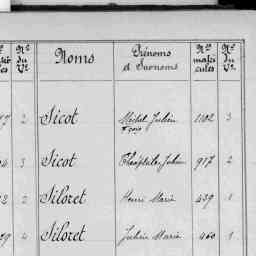 Nos
du
Vt.
Noms
Prénoms
et Surnoms
Nos
matri
cules
Nos
du
Vt.
2 Sicot Michel Julien 1102 3
fçois
3 Sicot Théophile Julien 917 2
2 Siloret Henri Marie 439 1
4 Siloret Julien Marie 460 1